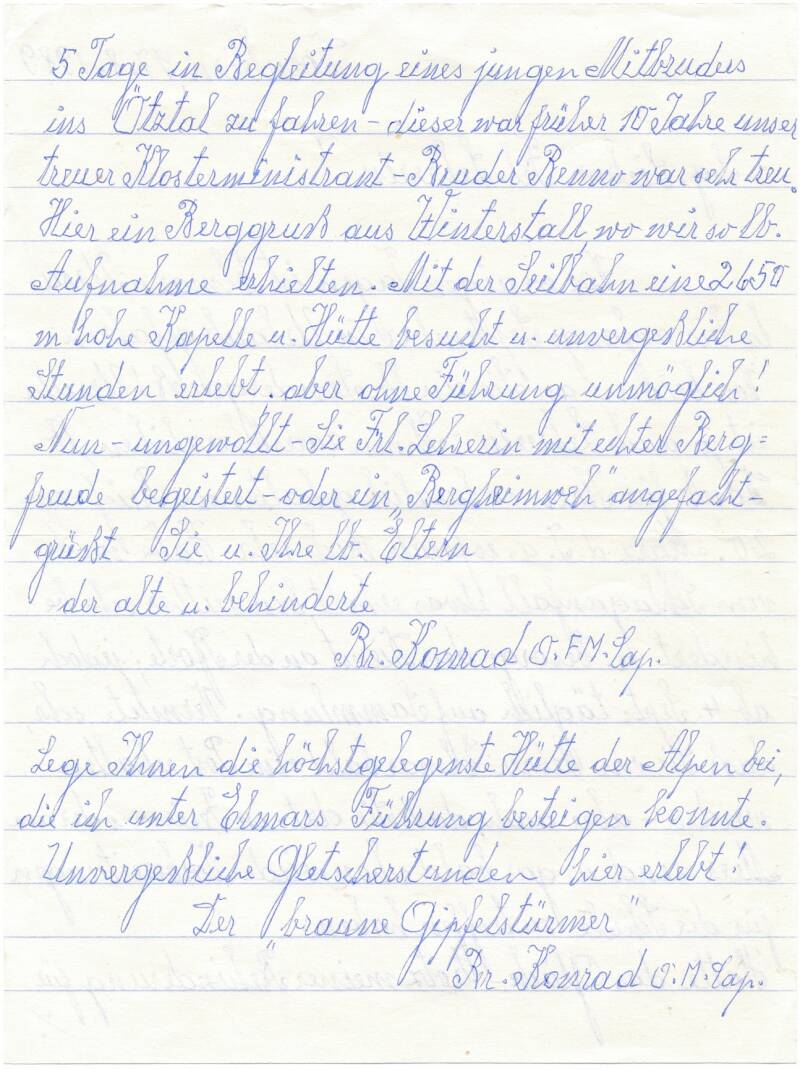 5 Tage in Begleitung eines jungen Mitbruders
ins Ötztal zu fahren - dieser war früher 10 Jahre unser
treuer Klosterministrant - Bruder Benno war sehr treu.
Hier ein Berggruß aus Winterstall, wo wir so lb.
Aufnahme erhielten. Mit der Seilbahn eine 2650
m hohe Kapelle u. Hütte besucht u. unvergeßliche
Stunden erlebt, aber ohne Führung unmöglich!
Nun - ungewollt - Sie Frl. Lehrerin mit echter Berg=
freude begeistert - oder ein „Bergheimweh" angefacht -
grüßt Sie u. Ihre lb. Eltern
der alte u. behinderte
Br. Konrad O.F.M. Cap.
Lege Ihnen die höchstgelegenste Hütte der Alpen bei,
die ich unter Elmars Führung besteigen konnte.
Unvergeßliche Gletscherstunden hier erlebt!
Der „braune Gipfelstürmer"
Br. Konrad O.M. Cap.